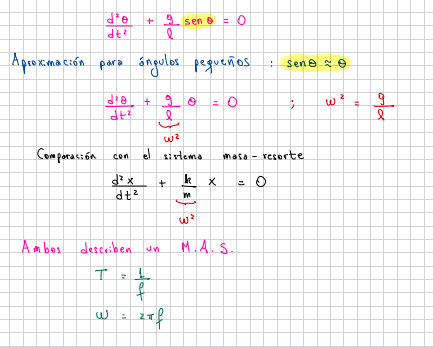 d²θ/dt² + g/l senθ = 0
Aproximación para ángulos pequeños : senθ ≈ θ
d²θ/dt² + g/l θ = 0 ; w² = g/l
w²
Comparación con el sistema masa-resorte
d²x/dt² + k/m x = 0
w²
Ambos describen un M.A.S.
T = 1/f
w = 2πf